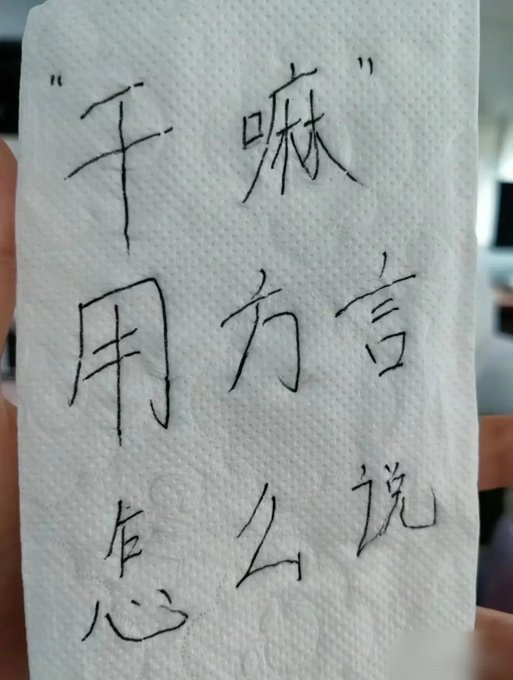 "干嘛"
用方言
怎么说